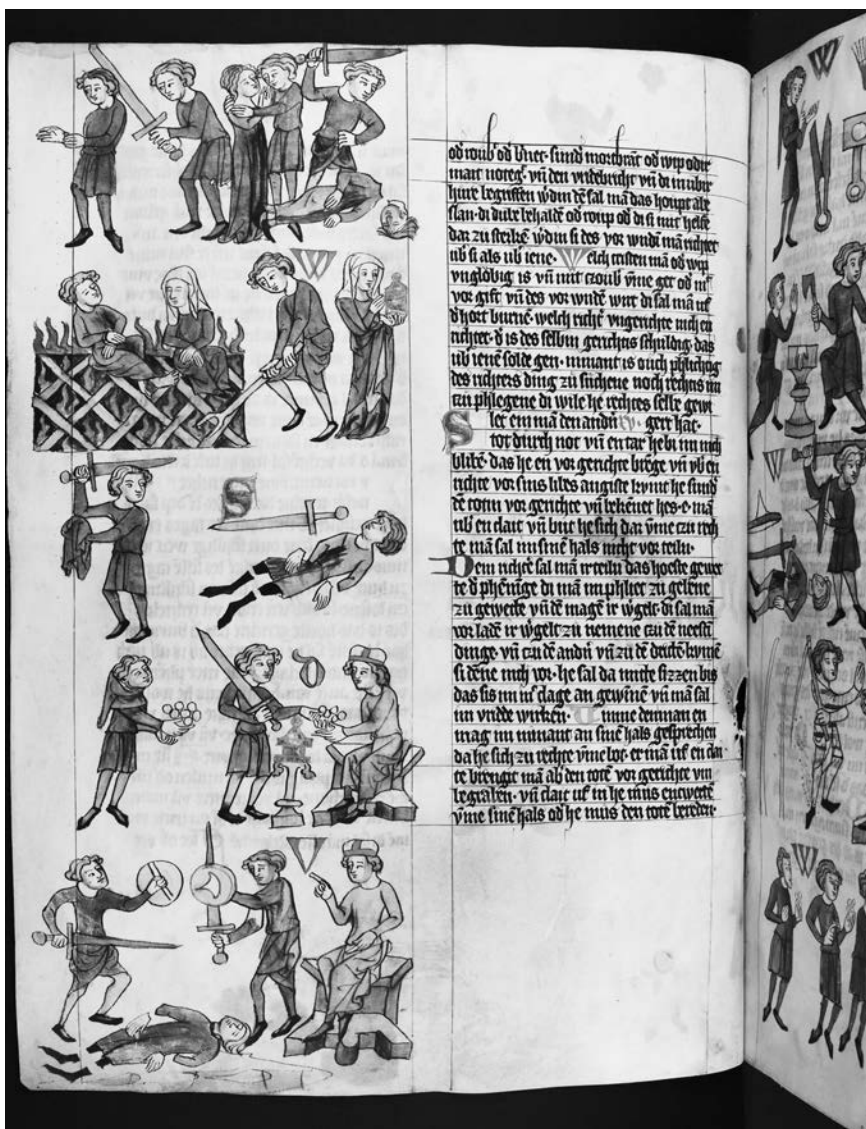 od roub od bꝛnet · sundꝰ moꝛtbrãt od wip odir
mait noteg · vñ den vridebricht vñ di in ubir
hure begriffen w͛din dē sal mã das houpt abe
slan · di dube behalde od roup od di si mit helfe
dar zu sterke w͛din si des voꝛ wūdē mã richtet
ub͛ si als ub͛ iene · Welch cristen mã od wip
vngloͤbig is vñ mit czoub͛ vme get od mͭ
voꝛ gift vñ des voꝛ wūdē wirt di sal mã uf
d͛ hoꝛt burnē · welch richt͛ vngerichte nich en
richtet · d͛ is des selbin gerichtes schuldig · das
ub͛ ienē solde gen · nimant is ouch phlichtig
des richters ding zů suchene noch rechtis im
czu phlegene di wile he rechtes selbe gewei
Slet ein mã den andn͛ gert hat ·
tot durch not vñ en tar he bi im nich
blibē · das he en voꝛ gerichte brēge vñ ub͛ en
richte voꝛ sins libes angiste kumt he sund͛
dē totin voꝛ gerichte vñ bekēnet hes · e mã
ub͛ en clait vñ but he sich dar vme czu rech
te mã sal im sinē hals nicht voꝛ teiln ·
Dem richte sal mã irteiln das hoeste gewet
te d͛ phēnīge di mã im phlict zu gebene
zu gewette vñ dē magē ir w͛gelt · di sal mã
voꝛ ladē ir w͛gelt zu nemene czu dē neestē
dinge · vñ czu dē andn͛ vñ zu dē dꝛittē kumē
si dēne nich voꝛ · he sal da mite sizzen bis
das sis im mͭ clage an gewinē vñ mã sal
im vride wirken ·
mag im nimant an sinē hals gesprechen
da he sich zu rechte vme bot · er mã uf en clai
te brengit mã ab͛ den totē voꝛ gerichte vm
begrabē · vñ clait uf in he mus entwertē
vme sinē hals od he mus den totē bereden ·